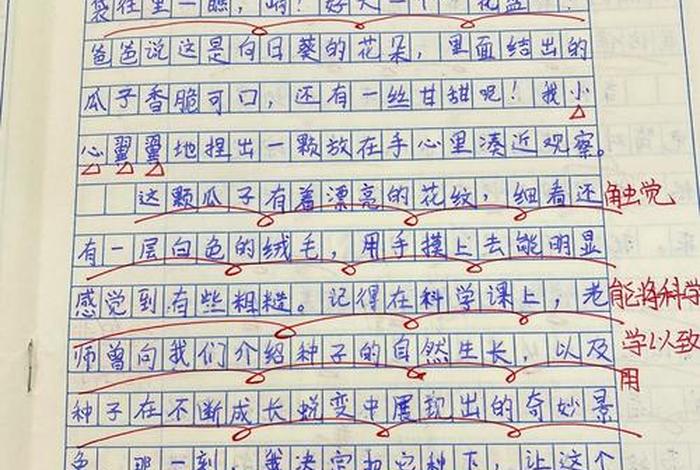 袋往里一瞧，嗬！好大一个"花盘"！
爸爸说这是向日葵的花朵，里面结出的
瓜子香脆可口，还有一丝甘甜呢！我小
心翼翼地捏出一颗放在手心里凑近观察。
这颗瓜子有着漂亮的花纹，细看还
触觉
有一层白色的绒毛，用手摸上去能明显
感觉到有些粗糙。记得在科学课上，老
能将科学
师曾向我们介绍种子的自然生长，以及
学以致
用
种子在不断成长蜕变中展现出的奇妙景
色，那一刻，我决定把它种下，让这个